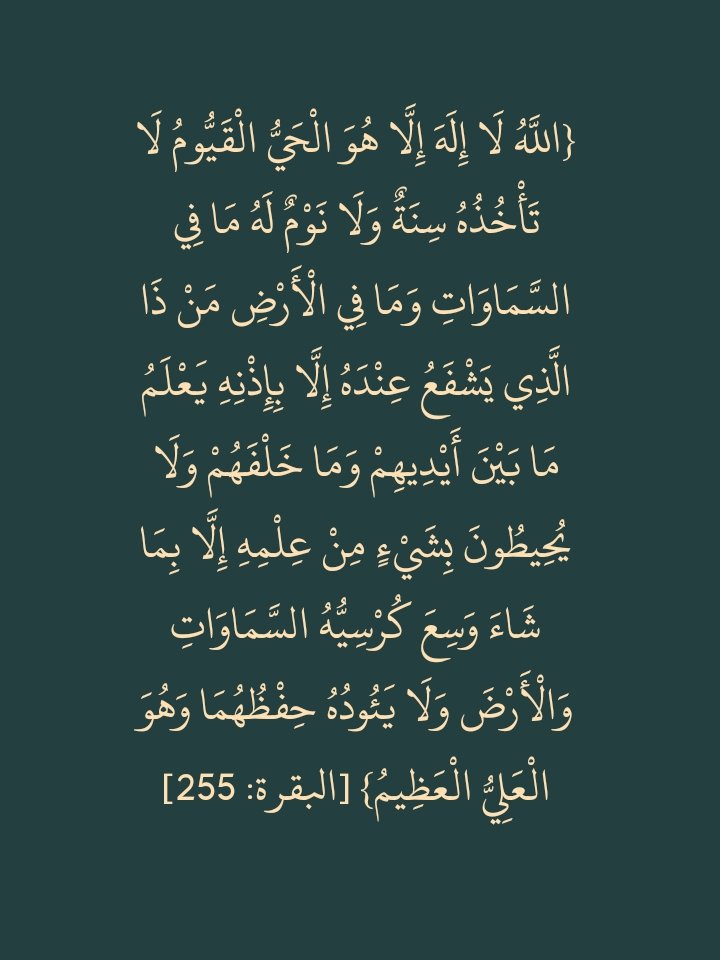 {اللَّهُ لَا إِلَهَ إِلَّا هُوَ الْحَيُّ الْقَيُّومُ لَا
تَأْخُذُهُ سِنَةٌ وَلَا نَوْمٌ لَهُ مَا فِي
السَّمَاوَاتِ وَمَا فِي الْأَرْضِ مَنْ ذَا
الَّذِي يَشْفَعُ عِنْدَهُ إِلَّا بِإِذْنِهِ يَعْلَمُ
مَا بَيْنَ أَيْدِيهِمْ وَمَا خَلْفَهُمْ وَلَا
يُحِيطُونَ بِشَيْءٍ مِنْ عِلْمِهِ إِلَّا بِمَا
شَاءَ وَسِعَ كُرْسِيُّهُ السَّمَاوَاتِ
وَالْأَرْضَ وَلَا يَئُودُهُ حِفْظُهُمَا وَهُوَ
الْعَلِيُّ الْعَظِيمُ} [البقرة: 255]